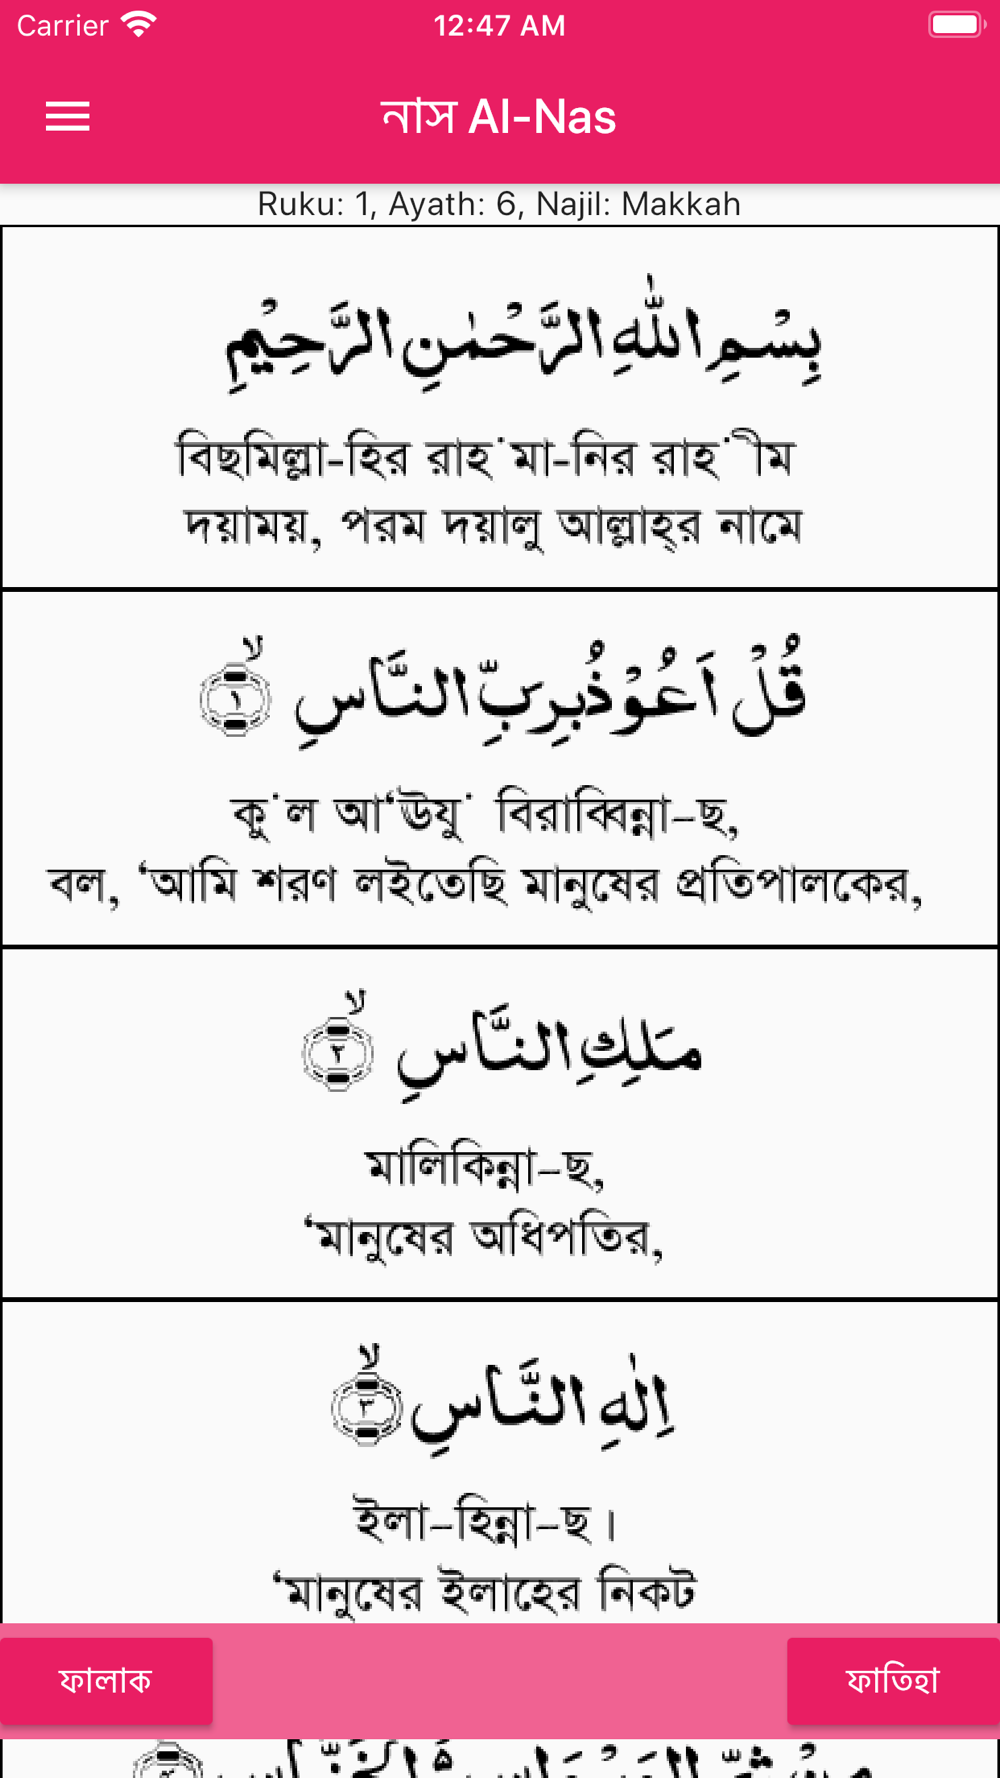 Carrier 12:47 AM
নাস Al-Nas
Ruku: 1, Ayath: 6, Najil: Makkah
بِسْمِ اللّٰهِ الرَّحْمٰنِ الرَّحِيْمِ
বিছমিল্লা-হির রাহ˙মা-নির রাহ˙ীম
দয়াময়, পরম দয়ালু আল্লাহ্‌র নামে
قُلْ اَعُوْذُ بِرَبِّ النَّاسِ ۙ‏﴿۱﴾
কু˙ল আ‘ঊযু˙ বিরাব্বিন্না–ছ,
বল, ‘আমি শরণ লইতেছি মানুষের প্রতিপালকের,
مَلِكِ النَّاسِ ۙ‏﴿۲﴾
মালিকিন্না–ছ,
‘মানুষের অধিপতির,
اِلٰهِ النَّاسِ ۙ‏﴿۳﴾
ইলা–হিন্না–ছ।
‘মানুষের ইলাহের নিকট
ফালাক ফাতিহা